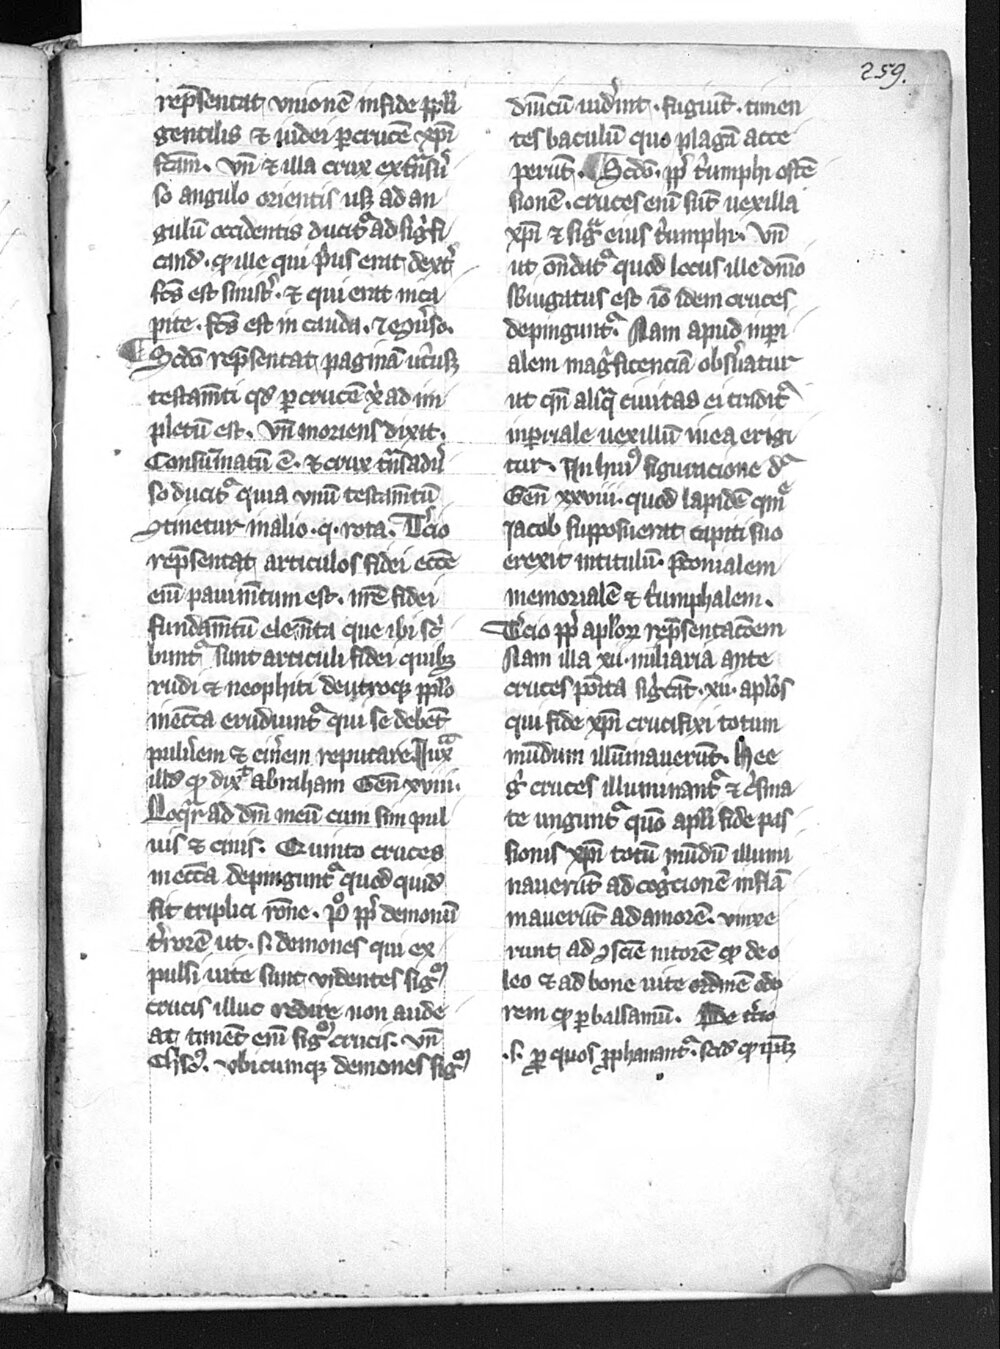 259.
rep̄sentat vnionē in fide ppl̄i
gentilis et iudei per crucē xp̄i
fc̄am. vn̄ et illa crux ex tn̄suͬ
so angulo orientis usqꝫ ad an
gulū occidentis ducitᷣ ad sigᷝfi
cand̄. qd̄ ille qui pͥus erat dextᷣ
fc̄s est sinistᷣ. et qui erat in ca
pite. fc̄s est in cauda. et eͨuͦso.
Scd̄o rep̄sentat paginā utͥusqꝫ
testam̄ti qd̄ per crucē xͥ ad im
pletū est. vn̄ moriens dixit.
Consūmatū ē. et crux tn̄sadūͦ
so ducitᷣ quia vnū testam̄tū
ꝯtinetur in alio. q. rota. Tͨcio
rep̄sentat articulos fidei ecc̄e
enī pauim̄tum est. nr̄e fidei
fundam̄tū elem̄ta que ibi sͨͥ
buntᷣ sunt articuli fidei quibꝫ
rudi et neophiti de utroqꝫ pplo
in ecc̄a erudiuntᷣ qui se debēt
puluͦem et cinͦem reputare Iuxᷓ
illd̄ qd̄ dixᷓ abraham Gen̄ xviii.
Loqͬ ad dm̄ meū cum sim pul
uis et cinis. Quinto cruces
in ecc̄a depinguntᷣ quod quid̄
fit triplici rōne. Pͦ pp̄ demonū
tͨrorē ut. s. demones qui ex
pulsi inte sunt videntes sigᷠ
crucis illuc redire non aude
at timēt enī sigᷠ crucis. vn̄
Chrͦsꝰ. vbicumqꝫ demones sigᷠ
dn̄icū uidͦint. fugiūt. timen
tes baculū quo plagā acce
perūt. Scd̄o. pp̄ tͥumphi ostē
sionē. cruces enī sūt uexilla
xp̄i et sigᷠ eius tͥumphi. vn̄
ut on̄datᷣ quod locus ille dn̄io
sb̄iugatus est iō idem cruces
depinguntᷣ. Nam apud inp̄i
alem magᷠficenciā obsͬuatur
ut qn̄ aliqᷓ ciuitas ei traditᷣ
inperiale uexillū in ea erigi
tur. In huiꝰ figuracione dᷣ
Gen̄ xxviii. quod lapidē quē
Jacob supposuerat capiti suo
erexit in titulū. p̄conialem
memorialē et tͥumphalem.
Tͨcio pp̄ apl̄oꝝ rep̄sentac̄oem
Nam illa xii. luminaria ante
cruces poīta sigͨāt. xii. apl̄os
qui fide xp̄i crucifixi totum
mūdum illūinauerūt. Hee
gͦ cruces illuminantᷣ et cͥsma
te unguntᷣ quō apl̄i fide pas
sionis xp̄i totū mūdū illumi
nauerūt ad cogͨcionē inflā
mauerūt ad amorē. vnxe
runt ad ꝯsciē nitorē qd̄ de o
leo et ad bone uite odo
rem qd̄ per balsamū. De tͨcio
.s. per quos pphanantᷣ. sciēd̄ qd̄ ip̄ūꝫ